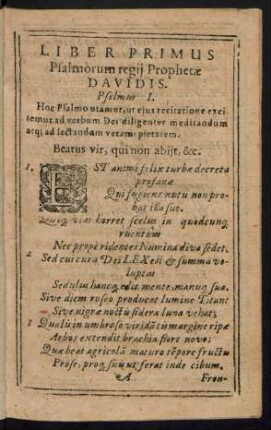 LIBER PRIMUS
Psalmorum regij Prophetæ
DAVIDIS.
Psalmus I.
Hoc Psalmo utamur, ut ejus recitatione exci
temur ad verbum Dei diligenter meditandum
atq; ad sectandam veram pietatem.
Beatus vir, qui non abijt, &c.
1. EST animi felix turbæ decreta
profanæ
Qui fugiens nutu non pro-
bat illa suo.
horret scelus in quodcunq
ruentum
Nec propè ridentes Numina diva sedet.
2 Sed cui cura Dei LEX est & summa vo-
luptas
Sedulus hancq; colit mente, manuq; suâ.
Sive diem roseo producat lumine Titan:
Sive nigræ noctis sidera luna vehat;
3 Qualis in umbroso viridantis margine ripæ
Arbos extendit brachia flore novo:
Quæ beat agricolâ maturo tēpore fructu
Prose, proq; suis ut ferat inde cibum.
A Fron-